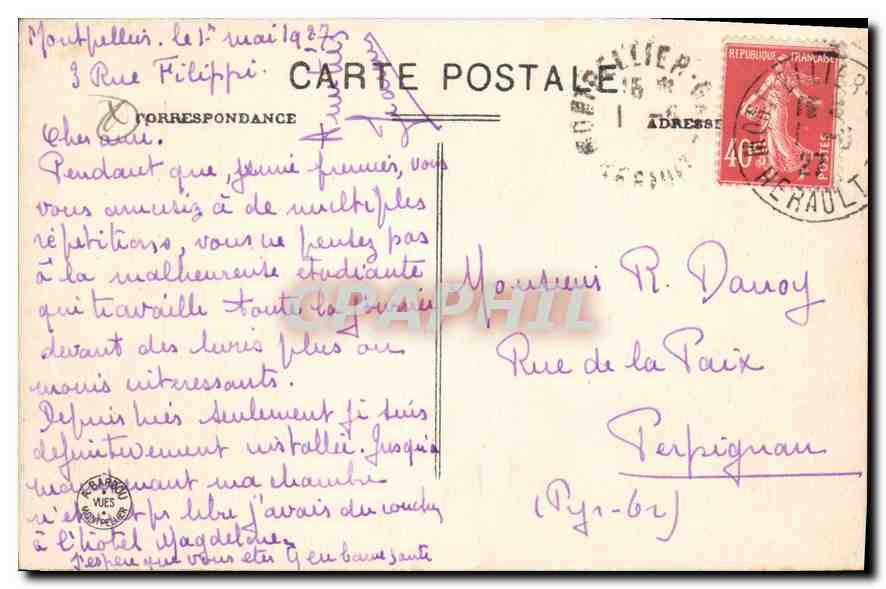 Montpellier. le 1er mai 1927
3 Rue Filippi.
CARTE POSTALE
CORRESPONDANCE
ADRESSE
Cher ami.
Pendant que, fermés, vous
vous amusez à de multiples
répétitions, vous ne pensez pas
à la malheureuse étudiante
qui travaille toute la journée
devant des livres plus ou
moins intéressants.
Depuis hier seulement je suis
définitivement installée. Jusqu'à
maintenant ma chambre
n'était pas libre j'avais du coucher
à l'hôtel Magdeleine
J'espère que vous êtes en bonne santé
Amitiés
Monsieur R. Danoy
Rue de la Paix
Perpignan
(Pyr-Or)
REPUBLIQUE FRANÇAISE
40c
POSTES
MONTPELLIER
HERAULT
R. BARDOU
VUES
MONTPELLIER
CPAPHIL